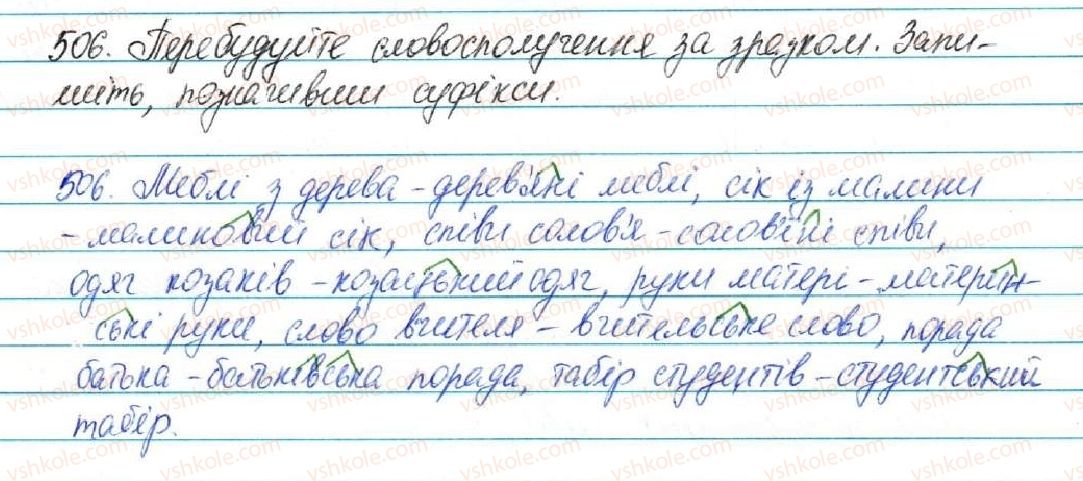 506. Перебудуйте словосполучення за зразком. Запи-
шіть, позначивши суфікси.
506. Меблі з дерева - дерев'яні меблі, сік із малини
- малиновий сік, співи солов'я - солов'їні співи,
одяг козаків - козацький одяг, руки матері - материн-
ські руки, слово вчителя - вчительське слово, порада
батька - батьківська порада, табір студентів - студентський
табір.